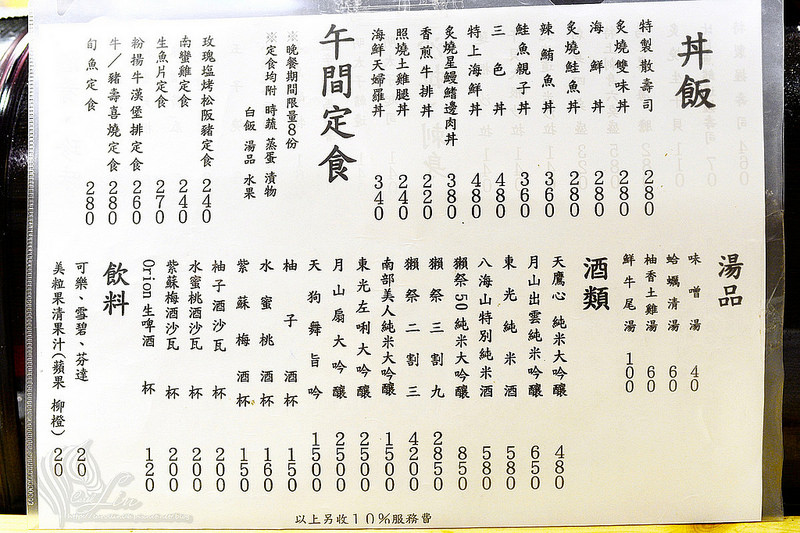 丼飯
特製散壽司 280
炙燒雙味丼 280
海鮮丼 280
炙燒鮭魚丼 280
辣鮪魚丼 360
鮭魚親子丼 360
三色丼 480
特上海鮮丼 480
炙燒星鰻鰭邊肉丼 380
香煎牛排丼 220
照燒土雞腿丼 240
海鮮天婦羅丼 340
午間定食
※晚餐期間限量8份
※定食均附 時蔬 蒸蛋 漬物
白飯 湯品 水果
玫瑰塩烤松阪豬定食 240
南蠻雞定食 240
生魚片定食 270
粉揚牛漢堡排定食 260
牛／豬壽喜燒定食 280
旬魚定食 280
湯品
味噌湯 40
蛤蠣清湯 60
柚香土雞湯 60
鮮牛尾湯 100
酒類
天鷹心 純米大吟釀 480
月山出雲純米吟釀 650
東光純米酒 580
八海山特別純米酒 580
獺祭50純米大吟釀 850
獺祭三割九 2850
獺祭二割三 4200
南部美人純米大吟釀 1500
東光左唎大吟釀 2500
月山扇大吟釀 2500
天狗舞旨吟 1500
柚子酒 杯 150
水蜜桃酒 杯 160
紫蘇梅酒 杯 150
柚子酒沙瓦 杯 200
水蜜桃酒沙瓦 杯 200
紫蘇梅酒沙瓦 杯 200
Orion生啤酒 杯 120
飲料
可樂、雪碧、芬達 20
美粒果清果汁(蘋果 柳橙) 20
以上另收10%服務費